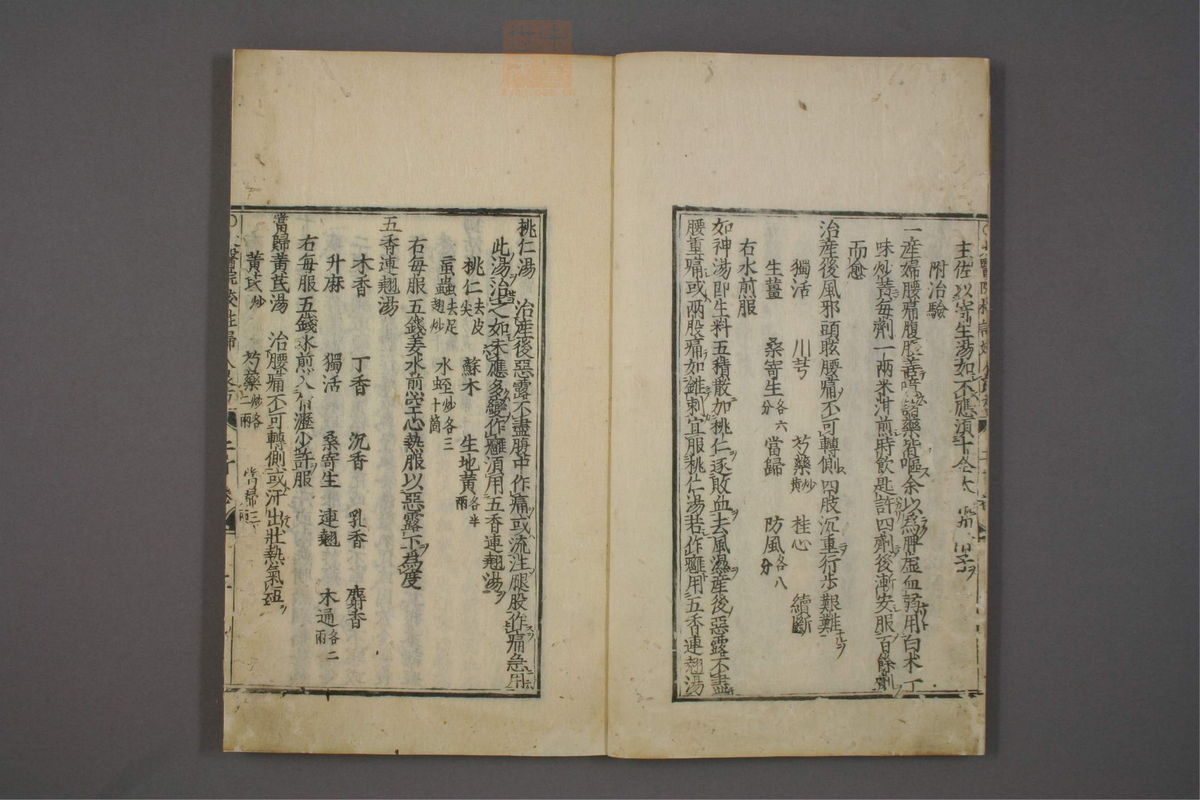 主佐以寄生湯如不應須十全大
附治驗
一産婦腰痛腹脹善噫諸藥皆嘔余以為脾虚血弱用白术一
味炒黄每劑一兩米泔煎時飲匙許四劑後漸安服百餘劑
而愈
治産後風邪頭眩腰痛不可轉側四肢沉重行歩艱難ナルヲ
獨活 川芎 芍藥炒黄 桂心 續斷
生薑 桑寄生各六分 當歸 防風各八分
右水煎服
如神湯即生料五積散加桃仁逐敗血去風濕産後惡露不盡
腰重痛或兩股痛如錐刺宜服桃仁湯若作癰用五香連翹湯
桃仁湯 治産後惡露不盡腹中作痛或流注腿股作痛急用
此湯治之如未應多變作癰須用五香連翹湯
桃仁去皮尖 蘇木 生地黄各半兩
蝱蟲去足翅炒 水蛭炒各三十箇
右每服五錢姜水煎空心熱服以惡露下為度
五香連翹湯
木香 丁香 沉香 乳香 麝香
升麻 獨活 桑寄生 連翹 木通各二兩
右每服五錢水煎入竹瀝少許服
當歸黄芪湯 治腰痛不可轉側或汗出壯熱氣短
黄芪炒 芍藥炒各二兩 當歸三兩